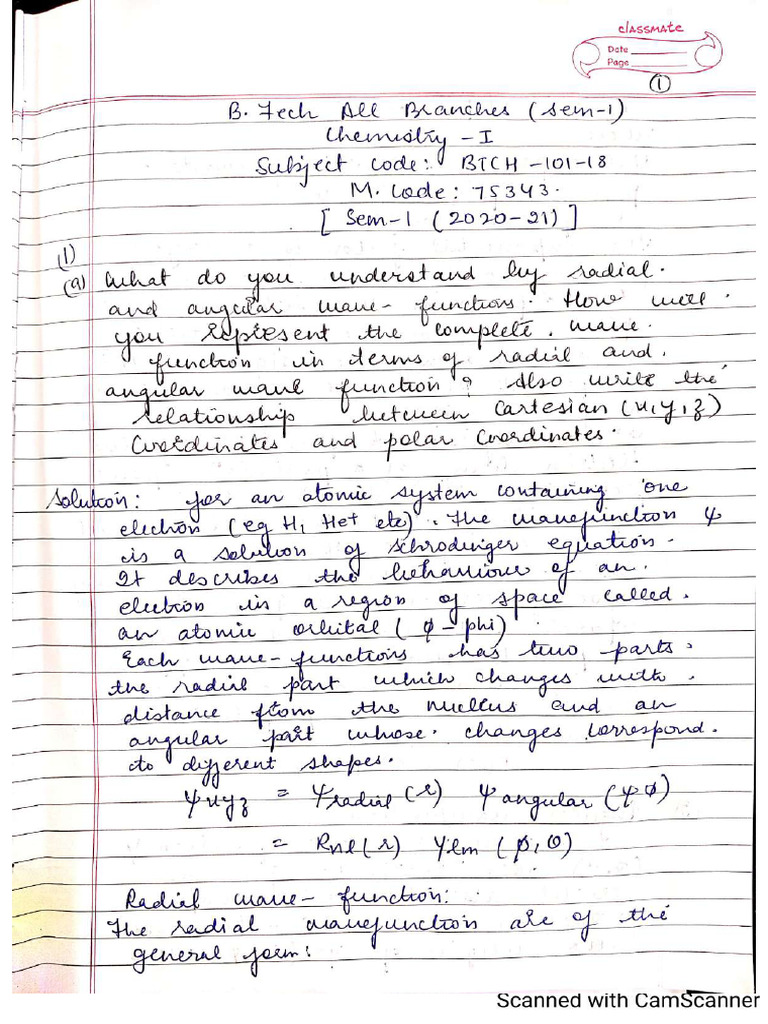 classmate
Date
Page
1
B. Tech All Branches (Sem-1)
Chemistry - I
Subject code: BTCH -101-18
M. Code: 75343.
[ Sem-1 (2020-21) ]
(1)
(a) What do you understand by radial.
and angular wave-functions. How will.
you represent the complete. wave.
function in terms of radial and.
angular wave function? Also write the
relationship between Cartesian (x,y,z)
Coordinates and polar Coordinates.
Solution: for an atomic system containing one
electron (eg H, He+ etc). The wavefunction ψ
is a solution of Schrodinger equation.
It describes the behaviour of an.
electron in a region of space called.
an atomic orbital (φ - phi)
Each wave-functions has two parts.
the radial part which changes with.
distance from the nucleus and an
angular part whose. changes correspond.
to different shapes.
ψxyz = ψradial(r) ψangular (ψφ)
= Rnl(r) Ylm (φ,θ)
Radial wave-function:
The radial wavefunction are of the
general form:
Scanned with CamScanner